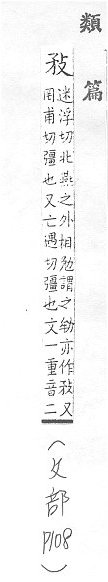 類篇
敄
迷浮切北燕之外相勉謂之勄亦作敄又
罔甫切彊也又亡遇切彊也文一重音二
(攵部
P108)